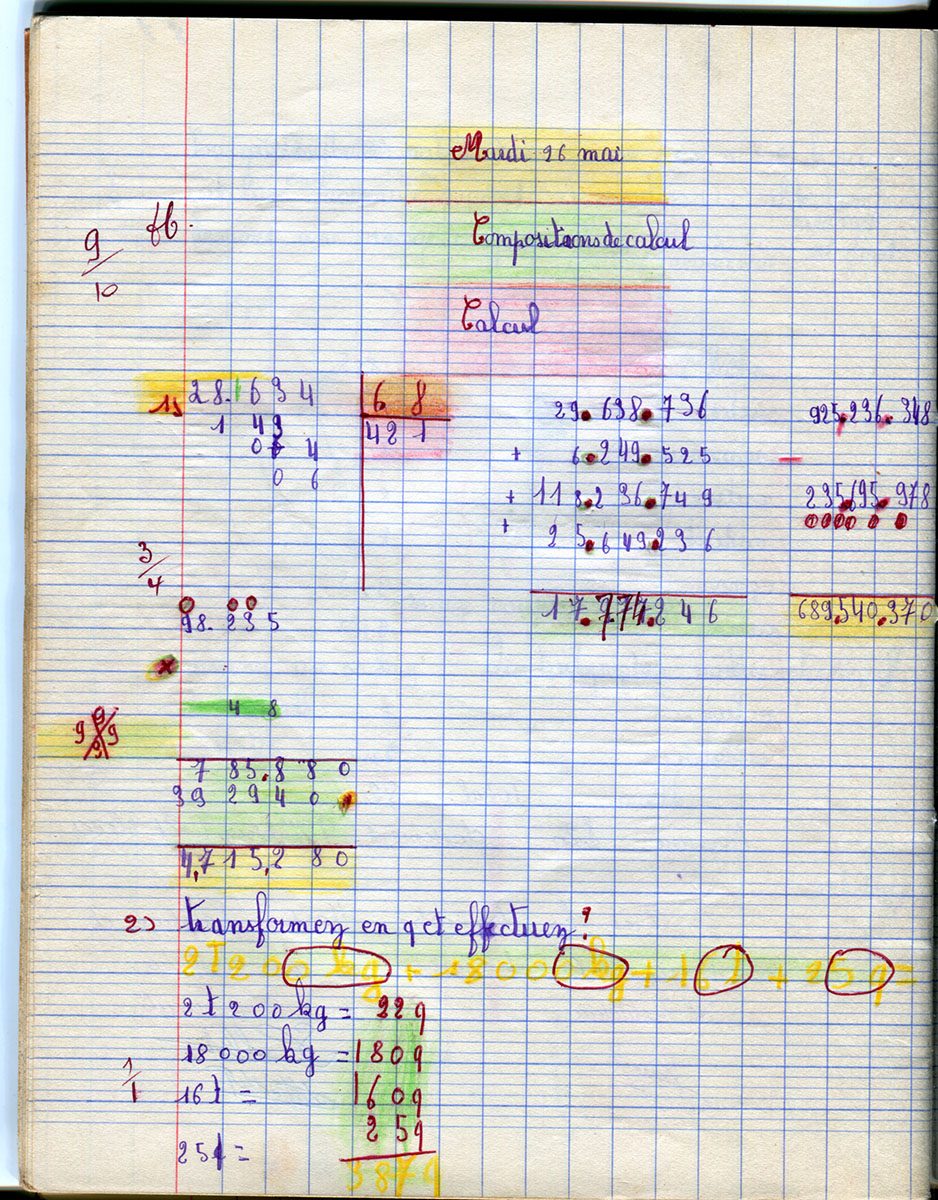 Mardi 26 mai
9/10 fb.
Compositions de calcul
Calcul
1) 28.634 68
1 49 421
0 4
0 6
29.698.736
+ 6.249.525
+ 118.236.749
+ 25.649.236
17.774.246
925.236.348
- 235.695.978
689.540.370
3/4
98.235
×
48
9 9 9 9
785.880
39 2940
4,715,280
2) transformez en q et effectuez ?
2T200kg + 18000kg + 16T + 25q =
2t 200 kg = 22q
18000 kg = 180q
1/1
16t = 160q
25q
25q =
387q